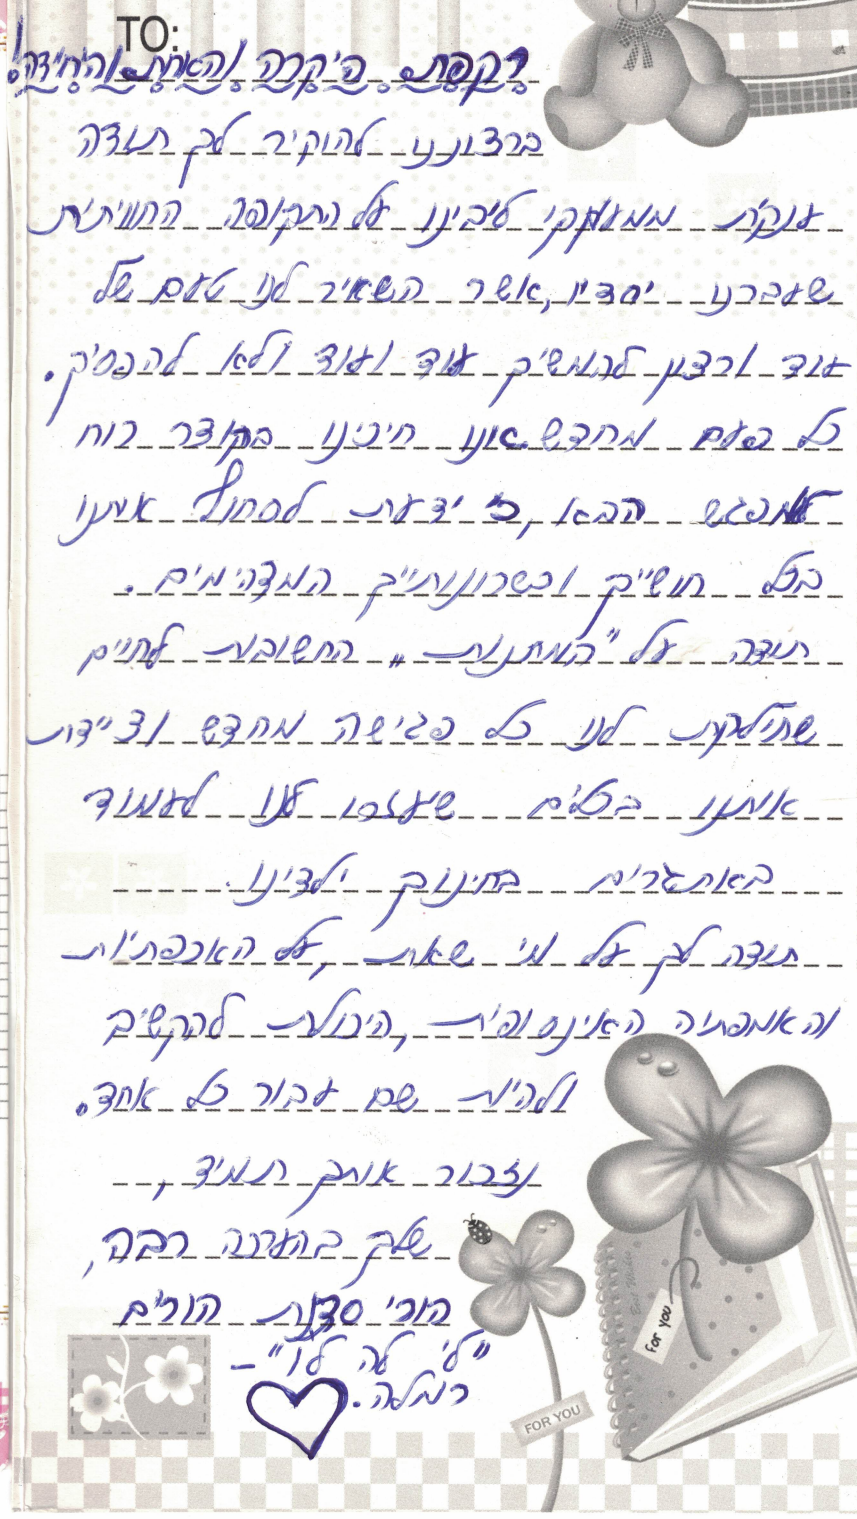 TO:
רקפת היקרה והאחת והיחידה!
ברצוננו להוקיר לך תודה
ענקית ממעמקי ליבינו על התקופה החוויתית
שעברנו יחדיו, אשר השאיר לנו טעם של
עוד ורצון להמשיך עוד ועוד ולא להפסיק.
כל פעם מחדש אנו חיכינו בקוצר רוח
למפגש הבא, כי ידעת לסחוף אותנו
בכל חושייך וכשרונותייך המדהימים.
תודה על "המתנות" החשובות לחיים
שחילקת לנו כל פגישה מחדש וציידת
אותנו בכלים שיעזרו לנו לעמוד
באתגרים בחינוך ילדינו.
תודה לך על מי שאת, על האכפתיות
והאמפתיה האינסופית, היכולת להקשיב
ולהיות שם עבור כל אחד.
נזכור אותך תמיד,
שלך בהערכה רבה,
הורי סדנת הורים
"לי לה לו" -
רמלה.
FOR YOU
for you